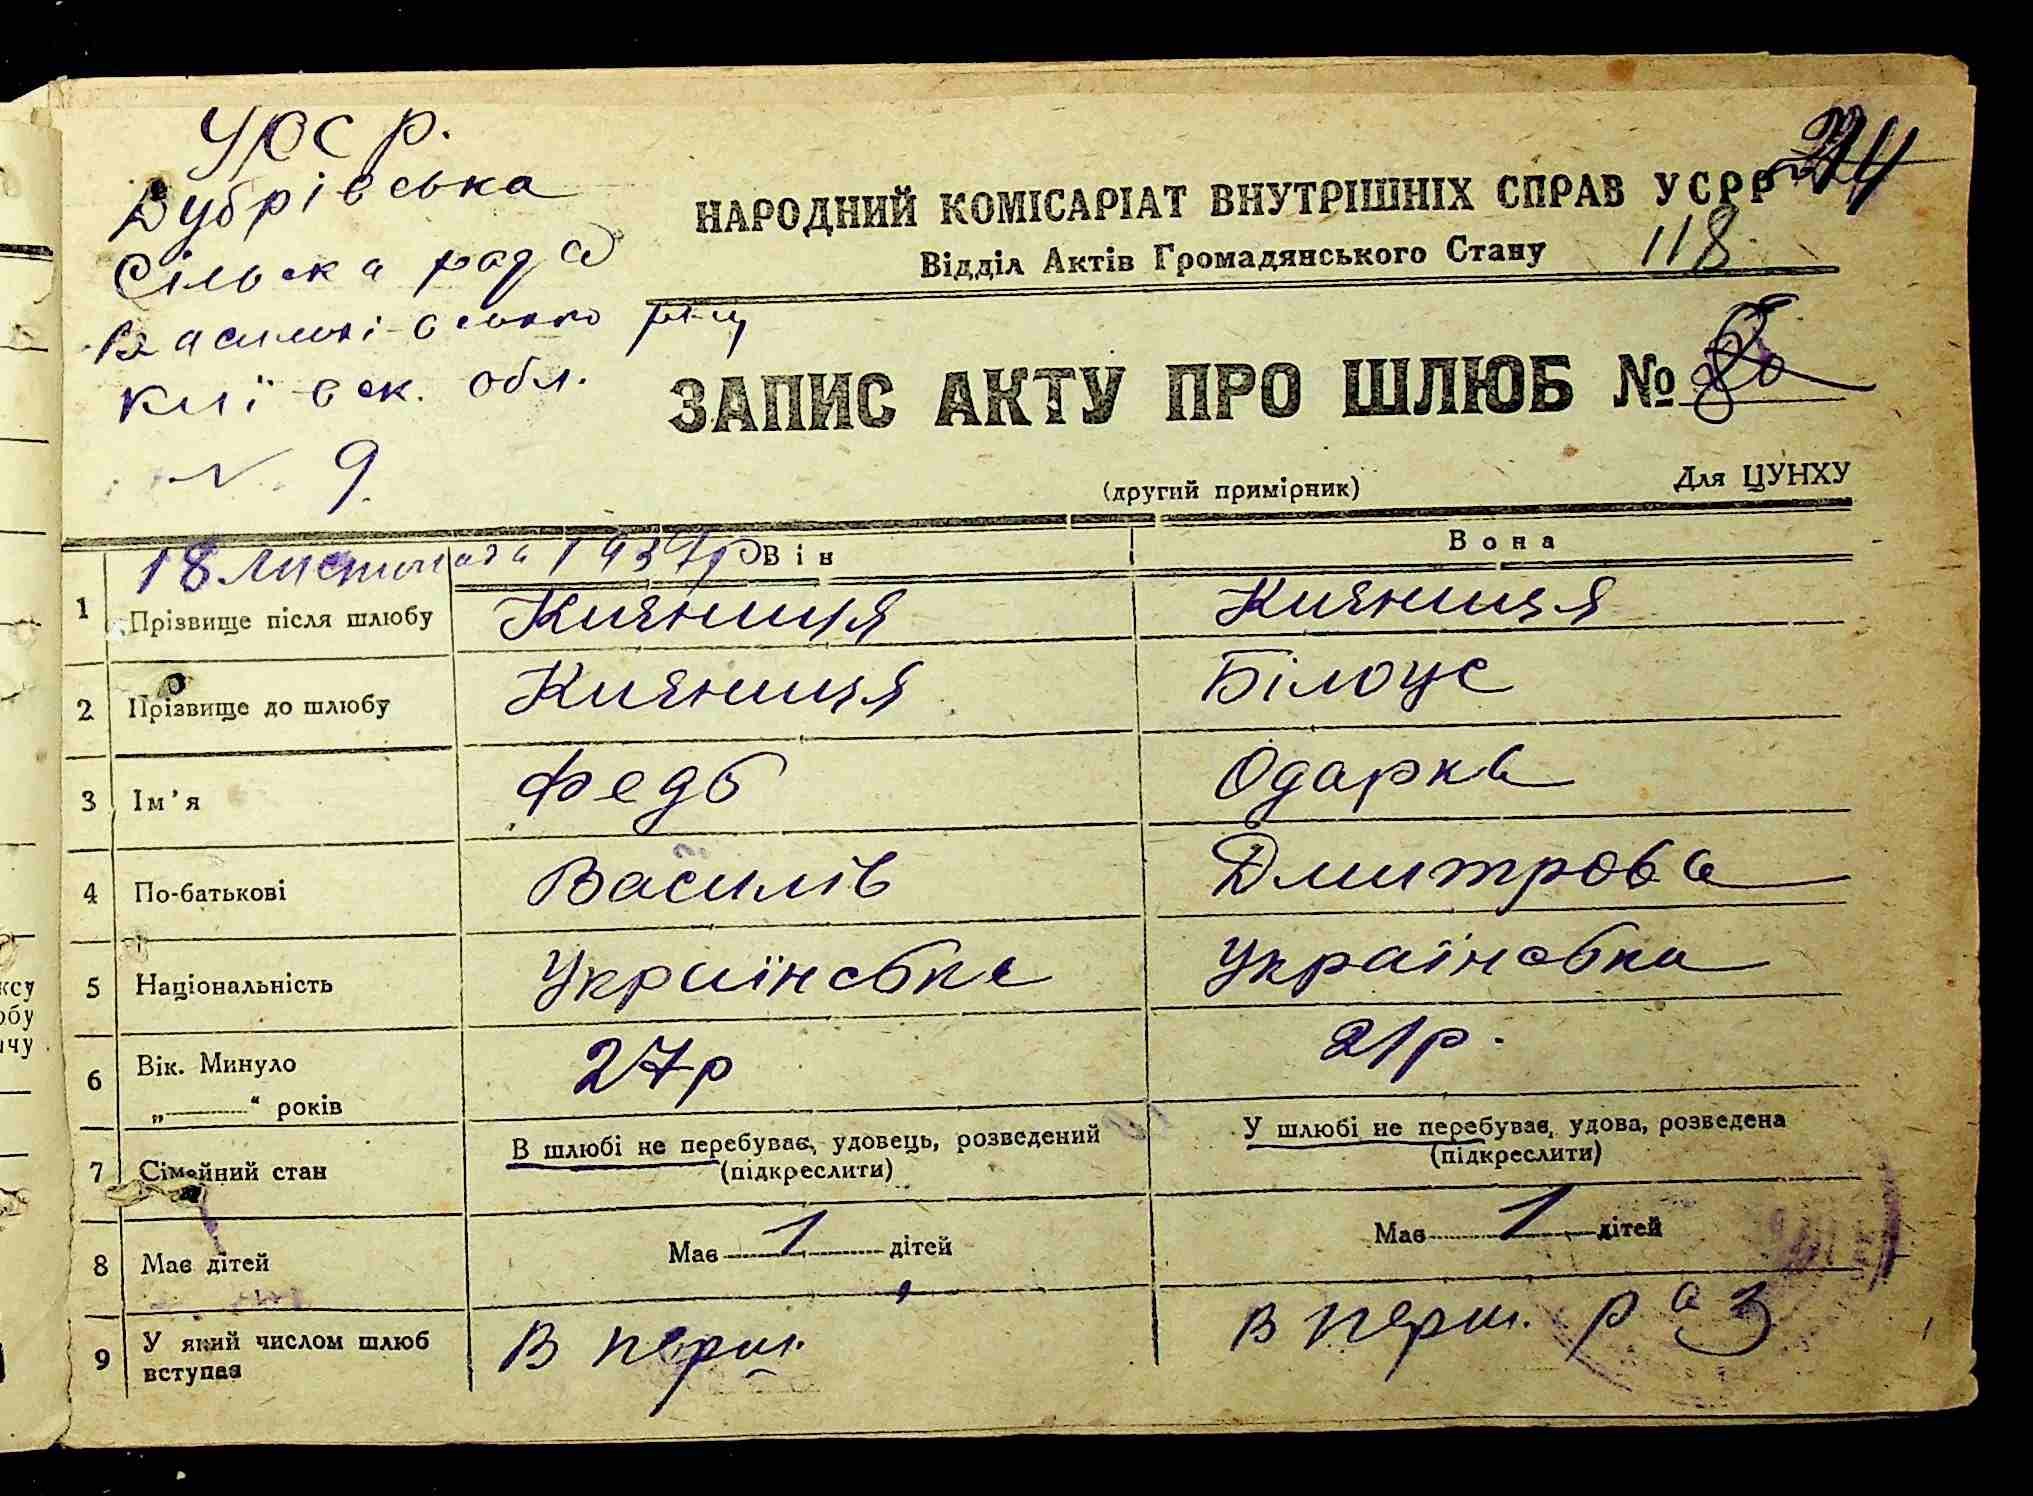 УРСР.
Дубрівська
Сільска рада
Київск. обл.
№ 9.
НАРОДНИЙ КОМІСАРІАТ ВНУТРІШНІХ СПРАВ УСРР
Відділ Актів Громадянського Стану 118
ЗАПИС АКТУ ПРО ШЛЮБ №
(другий примірник) Для ЦУНХУ
18 листопада 1937р Він Вона
1 Прізвище після шлюбу Кияниця Кияниця
2 Прізвище до шлюбу Кияниця Білоус
3 Ім’я Федь Одарка
4 По-батькові Василів Дмитрова
5 Національність Українська Українська
6 Вік. Минуло 27р 21р.
„ “ років
7 Сімейний стан В шлюбі не перебував, удовець, розведений У шлюбі не перебуває, удова, розведена
(підкреслити) (підкреслити)
8 Має дітей Має 1 дітей Має 1 дітей
9 У який числом шлюб вступає В перш. В перш. раз
ксу
обу
ичу